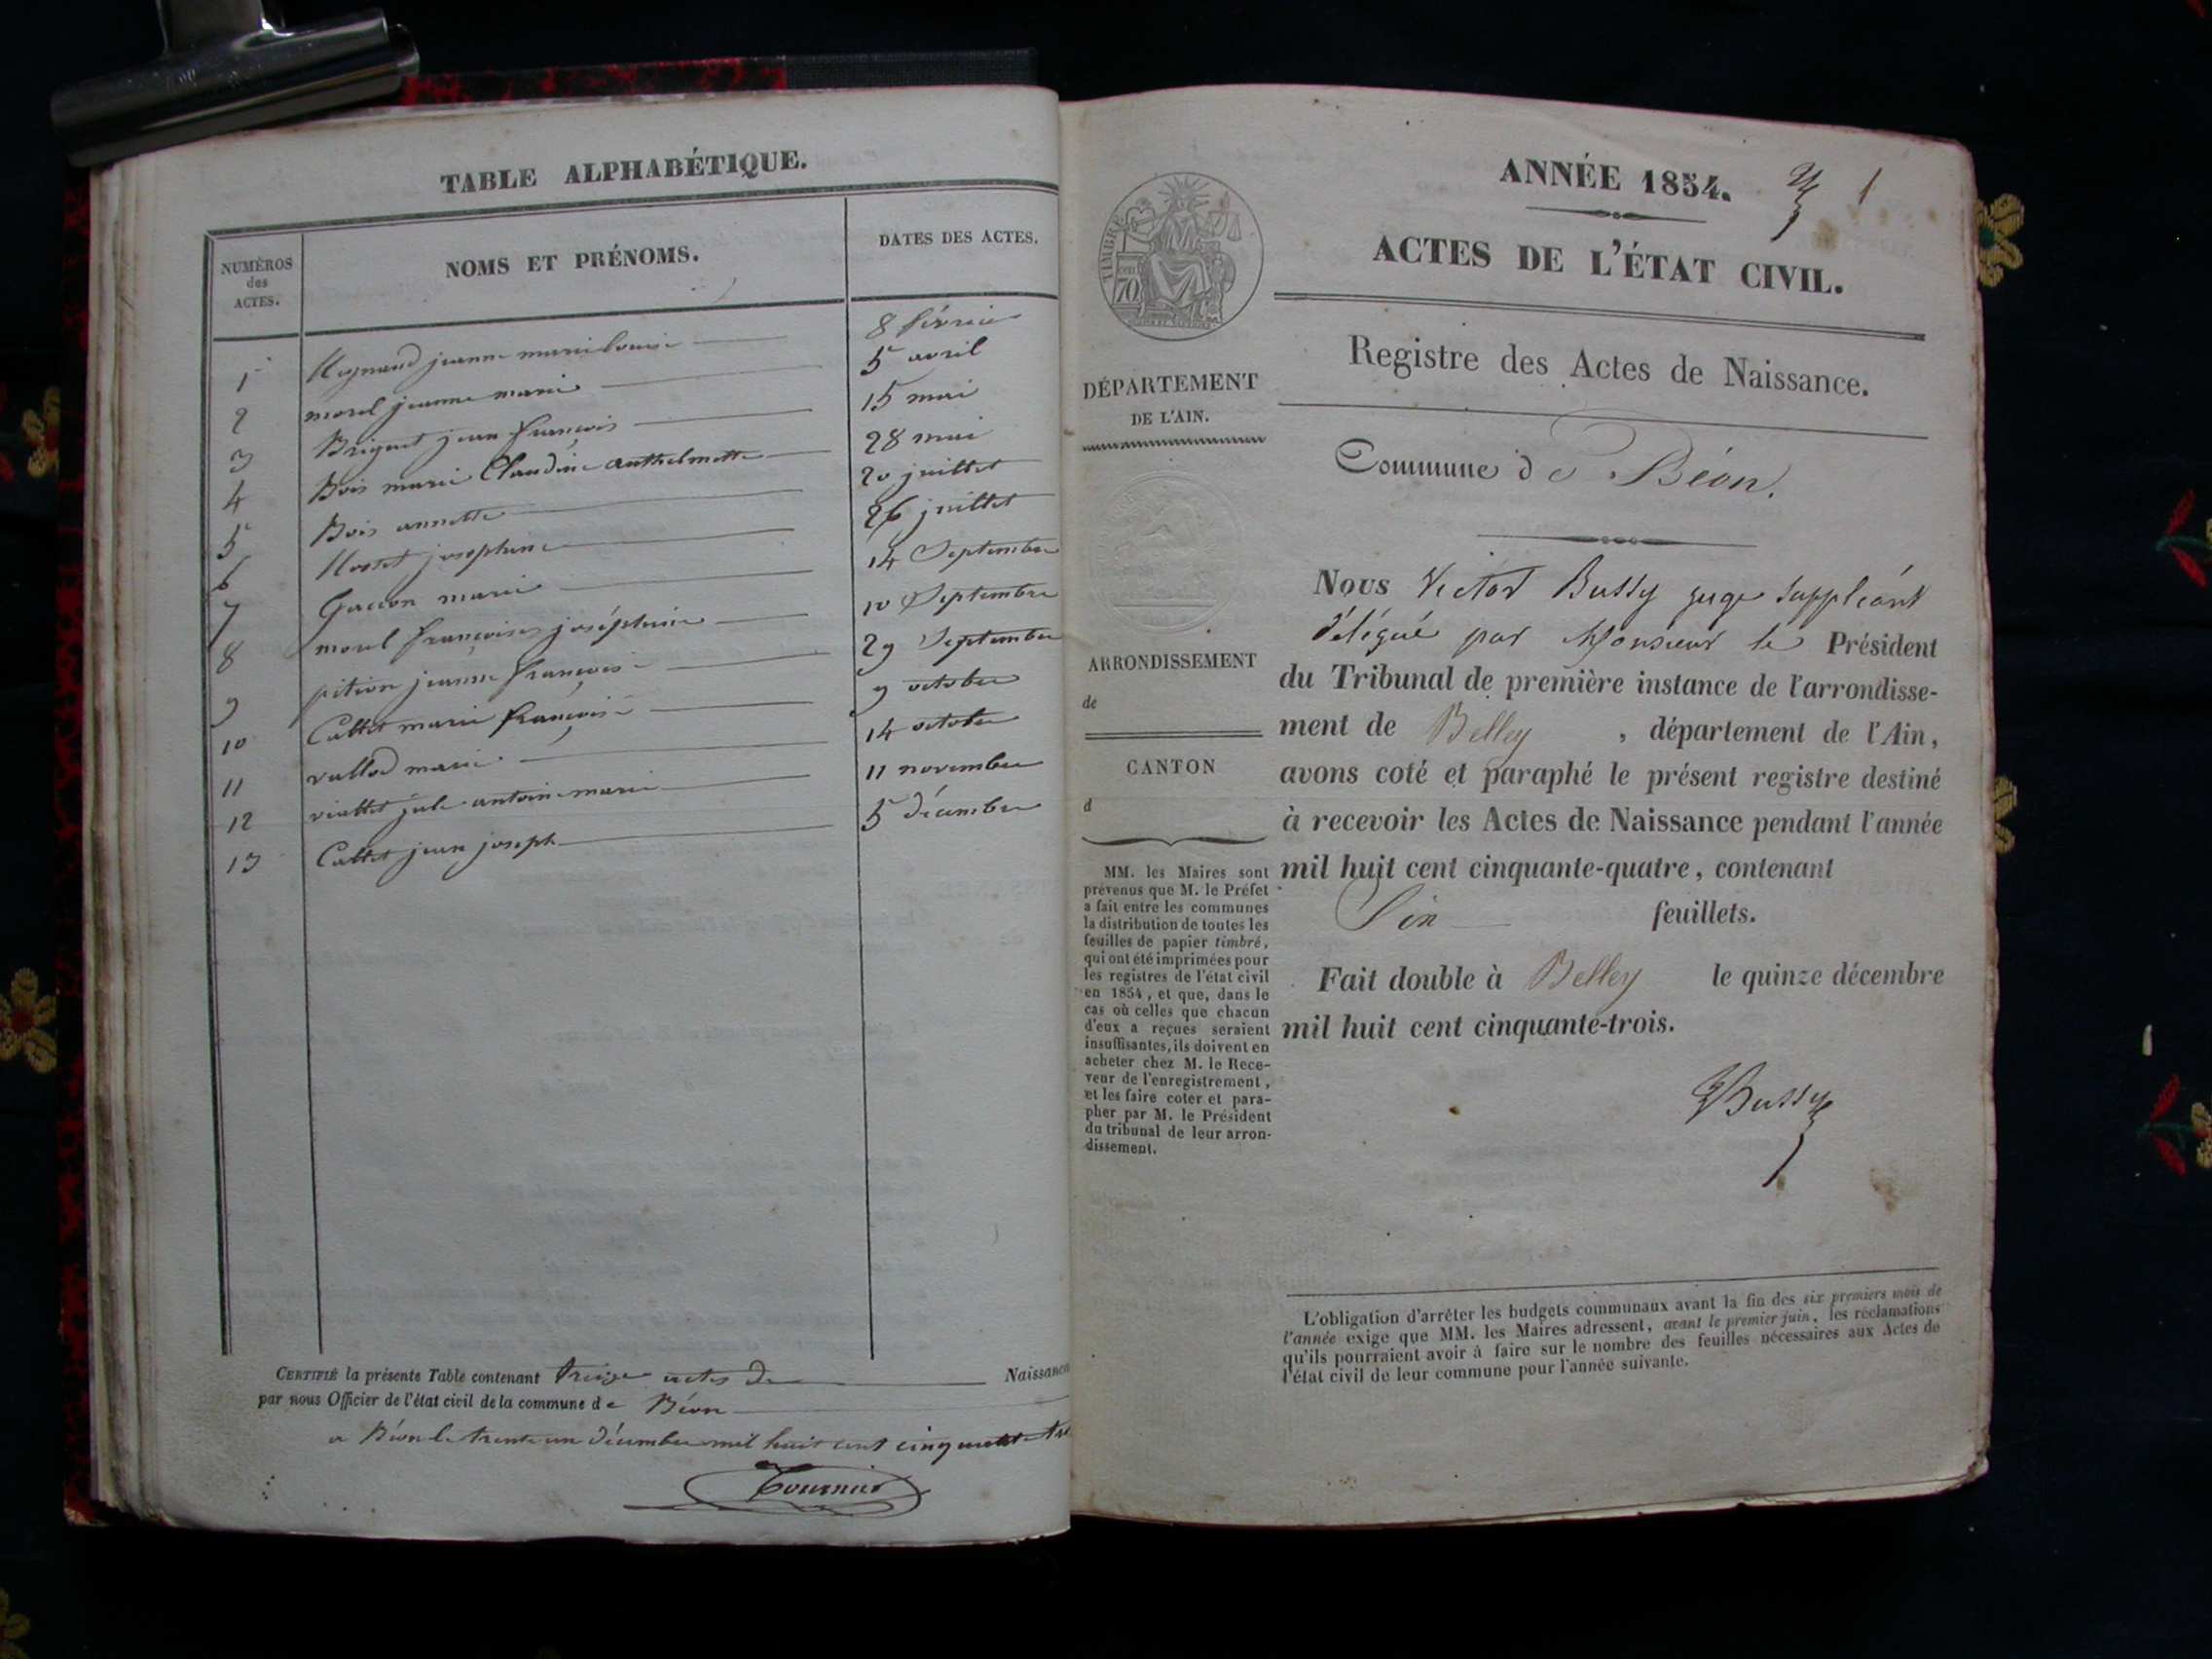 TABLE ALPHABÉTIQUE.
NUMÉROS
des
ACTES.
NOMS ET PRÉNOMS.
DATES DES ACTES.
1 jeanne marie louise 8 février
2 morel jeanne marie 5 avril
3 Briguet jean françois 15 mai
4 Bois marie Claudine anthelmette 28 mai
5 Bois annette 20 juillet
6 josephine 26 juillet
7 marie 14 Septembre
8 morel françoise joséphine 10 Septembre
9 pition jeanne françoise 29 Septembre
10 Callet marie françoise 9 octobre
11 vallod marie 14 octobre
12 viallet jule antoine marie 11 novembre
13 Callet jean joseph 5 décembre
CERTIFIÉ la présente Table contenant treize actes de Naissance
par nous Officier de l'état civil de la commune de Béon
a Béon le trente un décembre mil huit cent cinquante
Tournier
ANNÉE 1854. 1
ACTES DE L'ÉTAT CIVIL.
Registre des Actes de Naissance.
TIMBRE
70
DÉPARTEMENT
DE L'AIN.
ARRONDISSEMENT
de
CANTON
d
MM. les Maires sont
prévenus que M. le Préfet
a fait entre les communes
la distribution de toutes les
feuilles de papier timbré,
qui ont été imprimées pour
les registres de l'état civil
en 1854, et que, dans le
cas où celles que chacun
d'eux a reçues seraient
insuffisantes, ils doivent en
acheter chez M. le Rece-
veur de l'enregistrement,
et les faire coter et para-
pher par M. le Président
du tribunal de leur arron-
dissement.
Commune de Béon.
Nous Victor Bussy juge suppléant
délégué par Monsieur le Président
du Tribunal de première instance de l'arrondisse-
ment de Belley, département de l'Ain,
avons coté et paraphé le présent registre destiné
à recevoir les Actes de Naissance pendant l'année
mil huit cent cinquante-quatre, contenant
Six feuillets.
Fait double à Belley le quinze décembre
mil huit cent cinquante-trois.
VBussy
L'obligation d'arrêter les budgets communaux avant la fin des six premiers mois de
l'année exige que MM. les Maires adressent, avant le premier juin, les réclamations
qu'ils pourraient avoir à faire sur le nombre des feuilles nécessaires aux Actes de
l'état civil de leur commune pour l'année suivante.